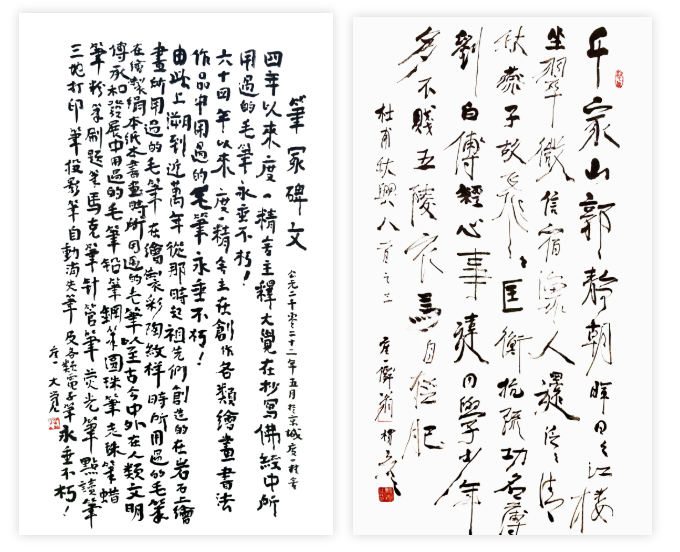 筆冢碑文
公元二千零二十二年五月於京城度一精舍
四年以來度一精舍主釋大覺在抄寫佛經中所
用過的毛筆永垂不朽！
六十四年以來度一精舍主在創作各類繪畫書法
作品中用過的毛筆永垂不朽！
由此上溯到近萬年從那時起祖先們創造的在岩石上繪
畫所用過的毛筆在繪製彩陶紋樣時所用過的毛筆
在繪製絹本紙本書畫時所用過的毛筆以至古今中外在人類文明
傳承和發展中用過的毛筆鉛筆鋼筆圓珠筆走珠筆蠟
筆粉筆刷題筆馬克筆針管筆荧光筆點讀筆
三地打印筆投影筆自動消失筆及各類電子筆永垂不朽！
度一大覺
千家山郭靜朝暉日々江樓
坐翠微信宿漁人還泛々清
秋燕子故飛々匡衡抗疏功名薄
劉向傳經心事違同學少年
多不賤五陵衣馬自輕肥
杜甫秋興八首之三
度一